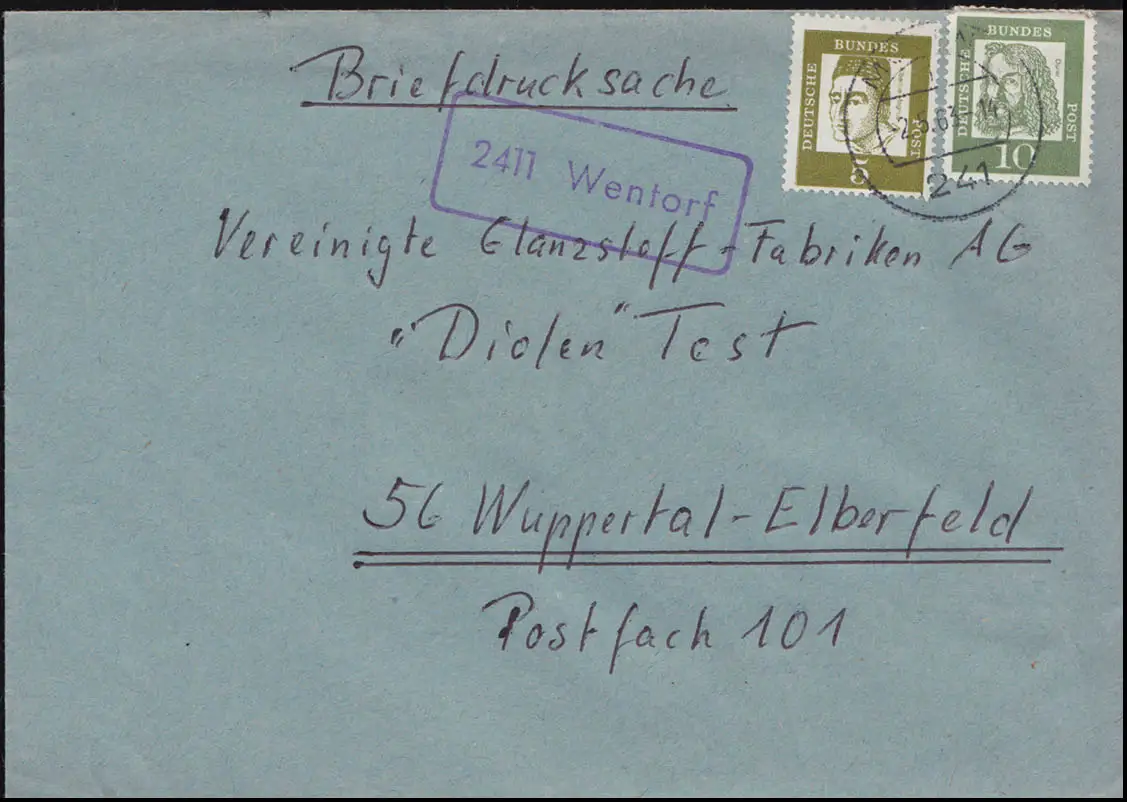 Briefdrucksache
DEUTSCHE BUNDES POST
5
DEUTSCHE BUNDES POST
Dürer
10
-2.5.63-14
241
2411 Wentorf
Vereinigte Glanzstoff-Fabriken AG
"Diolen" Test
56 Wuppertal-Elberfeld
Postfach 101